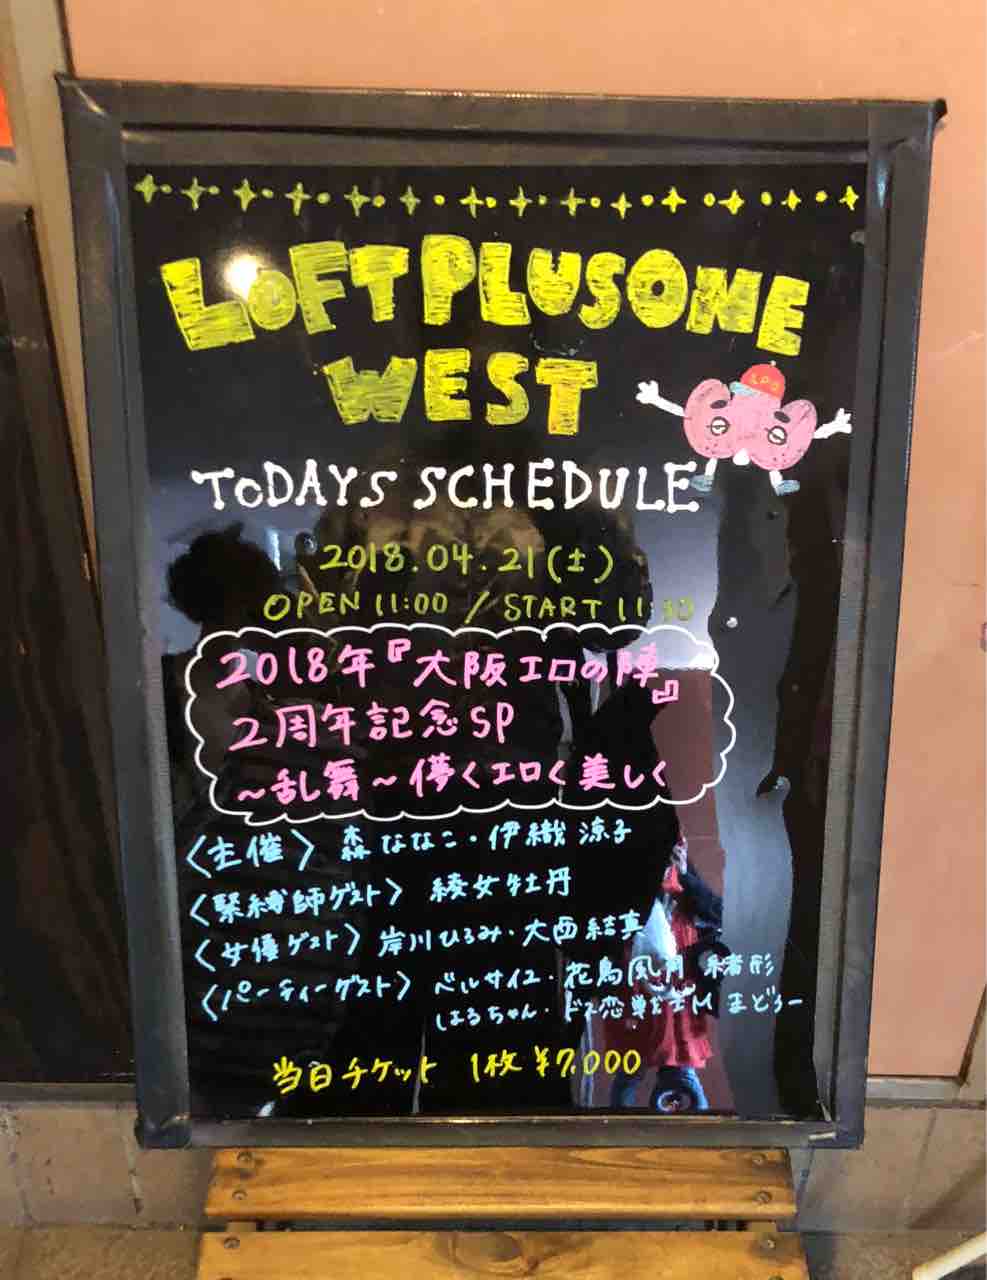 LOFT PLUSONE
WEST
LPO
TODAYS SCHEDULE
2018.04.21(土)
OPEN 11:00 / START 11:30
2018年『大阪エロの陣』
2周年記念SP
~乱舞~儚くエロく美しく
〈主催〉 森ななこ・伊織涼子
〈緊縛師ゲスト〉 綾女牡丹
〈女優ゲスト〉 岸川ひろみ・大西結真
〈パーティーゲスト〉 ベルサイユ・花鳥風月 緒形
はるちゃん・ドス恋戦士M まどろー
当日チケット 1枚 ¥7,000